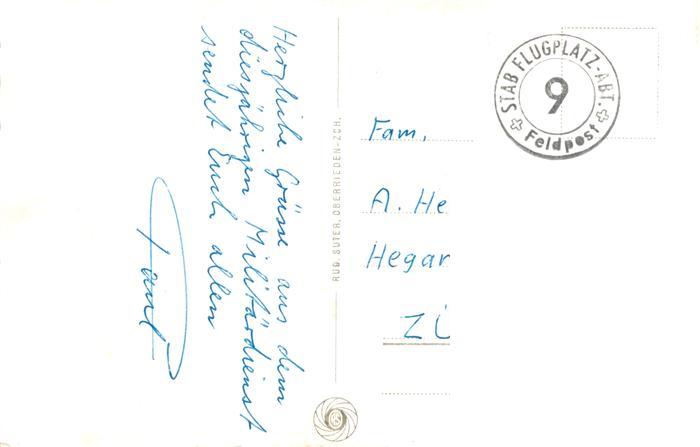 Herzliche Grüsse aus dem
diesjährigen Militärdienst
sendet Euch allen
Paul
RUD. SUTER, OBERRIEDEN-ZCH.
STAB FLUGPLATZ-ABT.
9
Feldpost
Fam.
A. He
Hegar
ZÜ